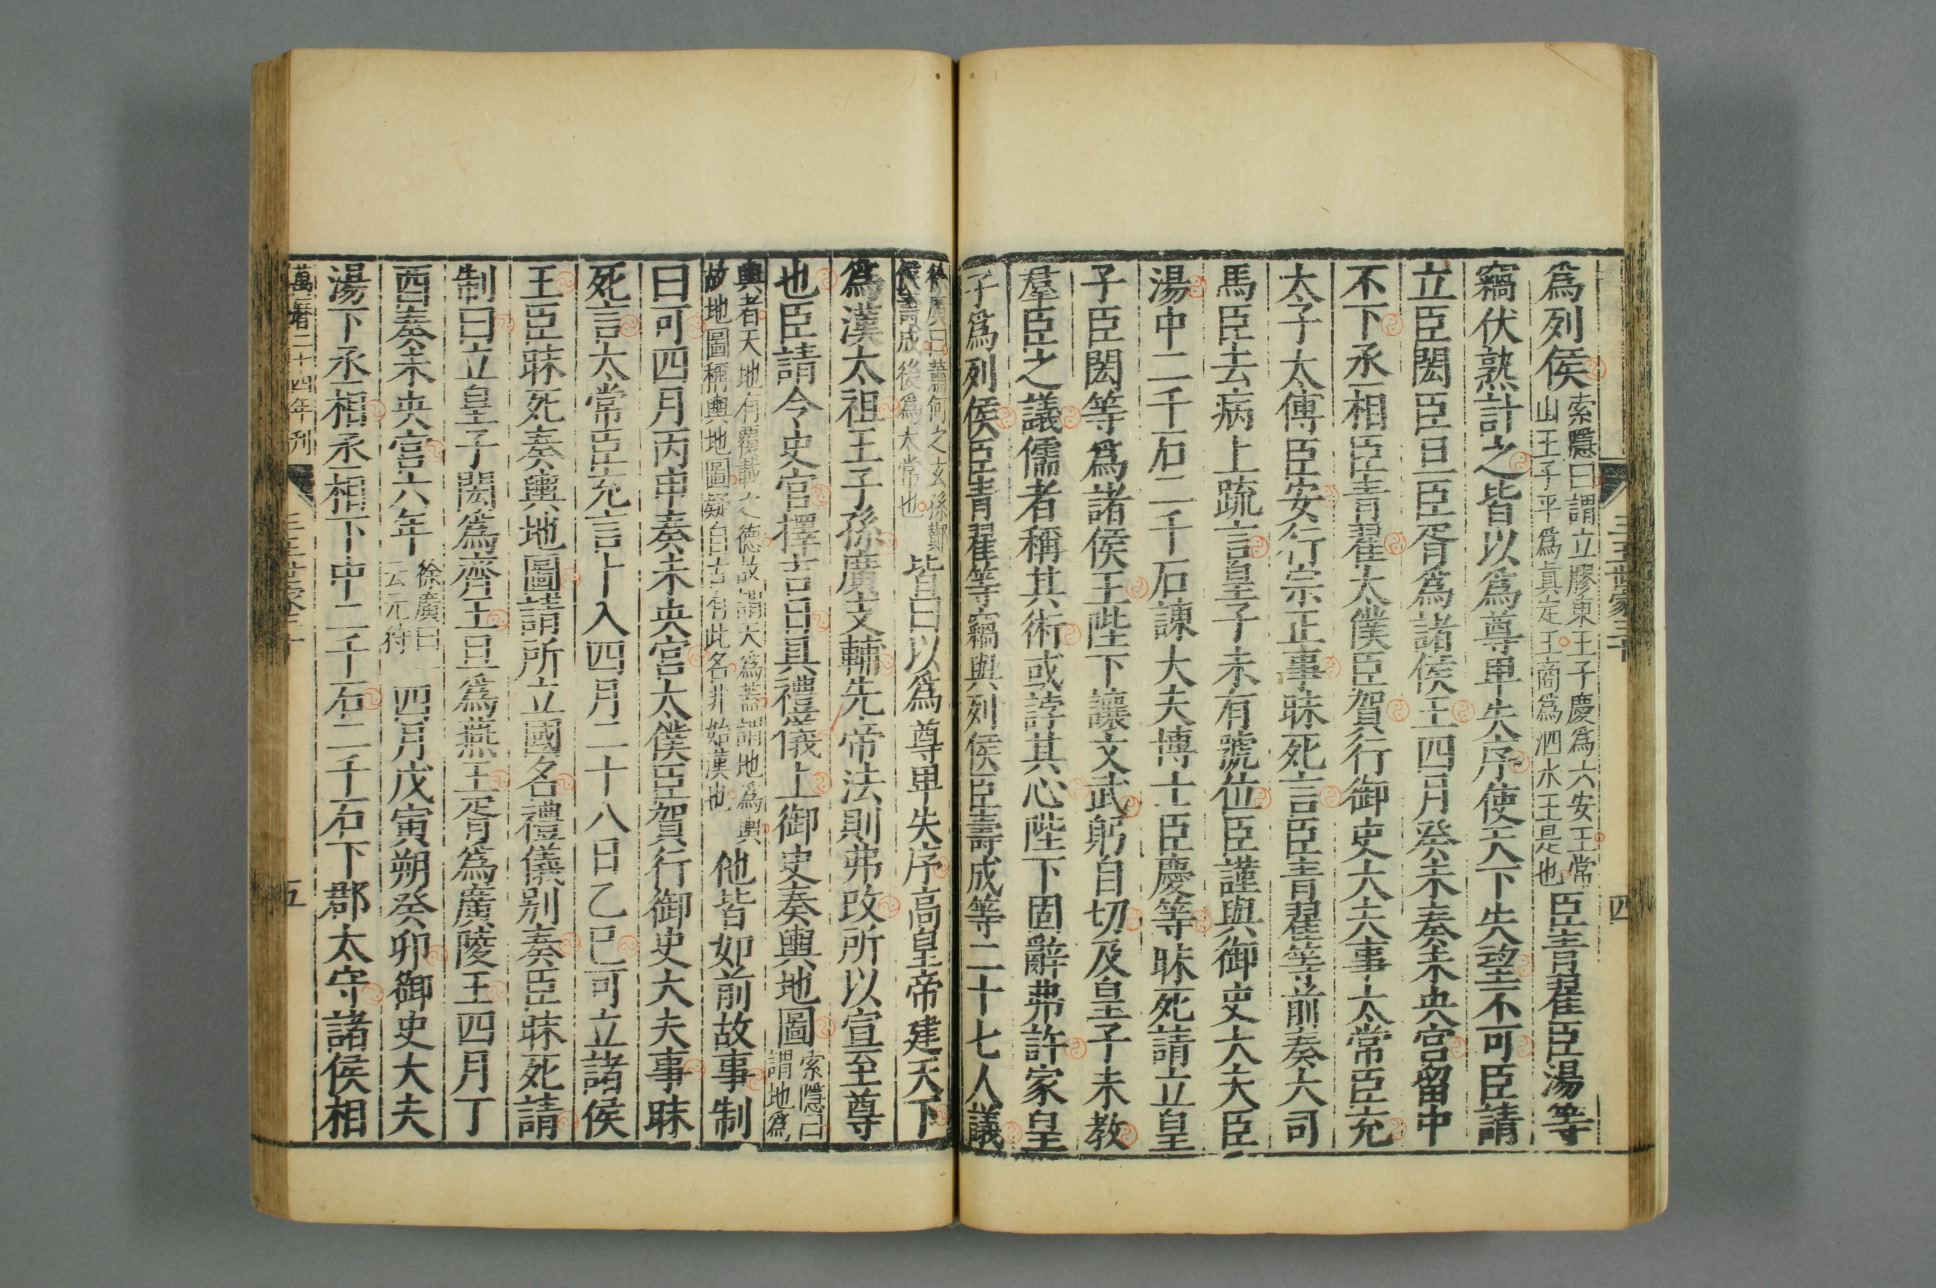 爲列侯索隱曰謂立膠東王子慶爲六安王常山王子平爲眞定王商爲泗水王是也臣靑翟臣湯等
竊伏熟計之皆以爲尊卑失序使天下失望不可臣請
立臣閎臣旦臣胥爲諸侯王四月癸未奏未央宮留中
不下丞相臣靑翟太僕臣賀行御史大夫事太常臣充
太子太傅臣安行宗正事昧死言臣靑翟等前奏大司
馬臣去病上疏言皇子未有號位臣謹與御史大夫臣
湯中二千石二千石諫大夫博士臣慶等昧死請立皇
子臣閎等爲諸侯王陛下讓文武躬自切及皇子未教
羣臣之議儒者稱其術或誖其心陛下固辭弗許家皇
子爲列侯臣靑翟等竊與列侯臣壽成等二十七人議
徐廣曰蕭何之玄孫酇侯壽成後爲太常也皆曰以爲尊卑失序高皇帝建天下
爲漢太祖王子孫廣支輔先帝法則弗改所以宣至尊
也臣請令史官擇吉日具禮儀上御史奏輿地圖索隱曰謂地爲
輿者天地有覆載之德故謂天爲蓋謂地爲輿故地圖稱輿地圖疑自古有此名非始漢也他皆如前故事制
曰可四月丙申奏未央宮太僕臣賀行御史大夫事昧
死言太常臣充言卜入四月二十八日乙巳可立諸侯
王臣昧死奏輿地圖請所立國名禮儀別奏臣昧死請
制曰立皇子閎爲齊王旦爲燕王胥爲廣陵王四月丁
酉奏未央宮六年徐廣曰云元狩四月戊寅朔癸卯御史大夫
湯下丞相丞相下中二千石二千石下郡太守諸侯相
萬曆二十四年刊
三王世家三十
四
五